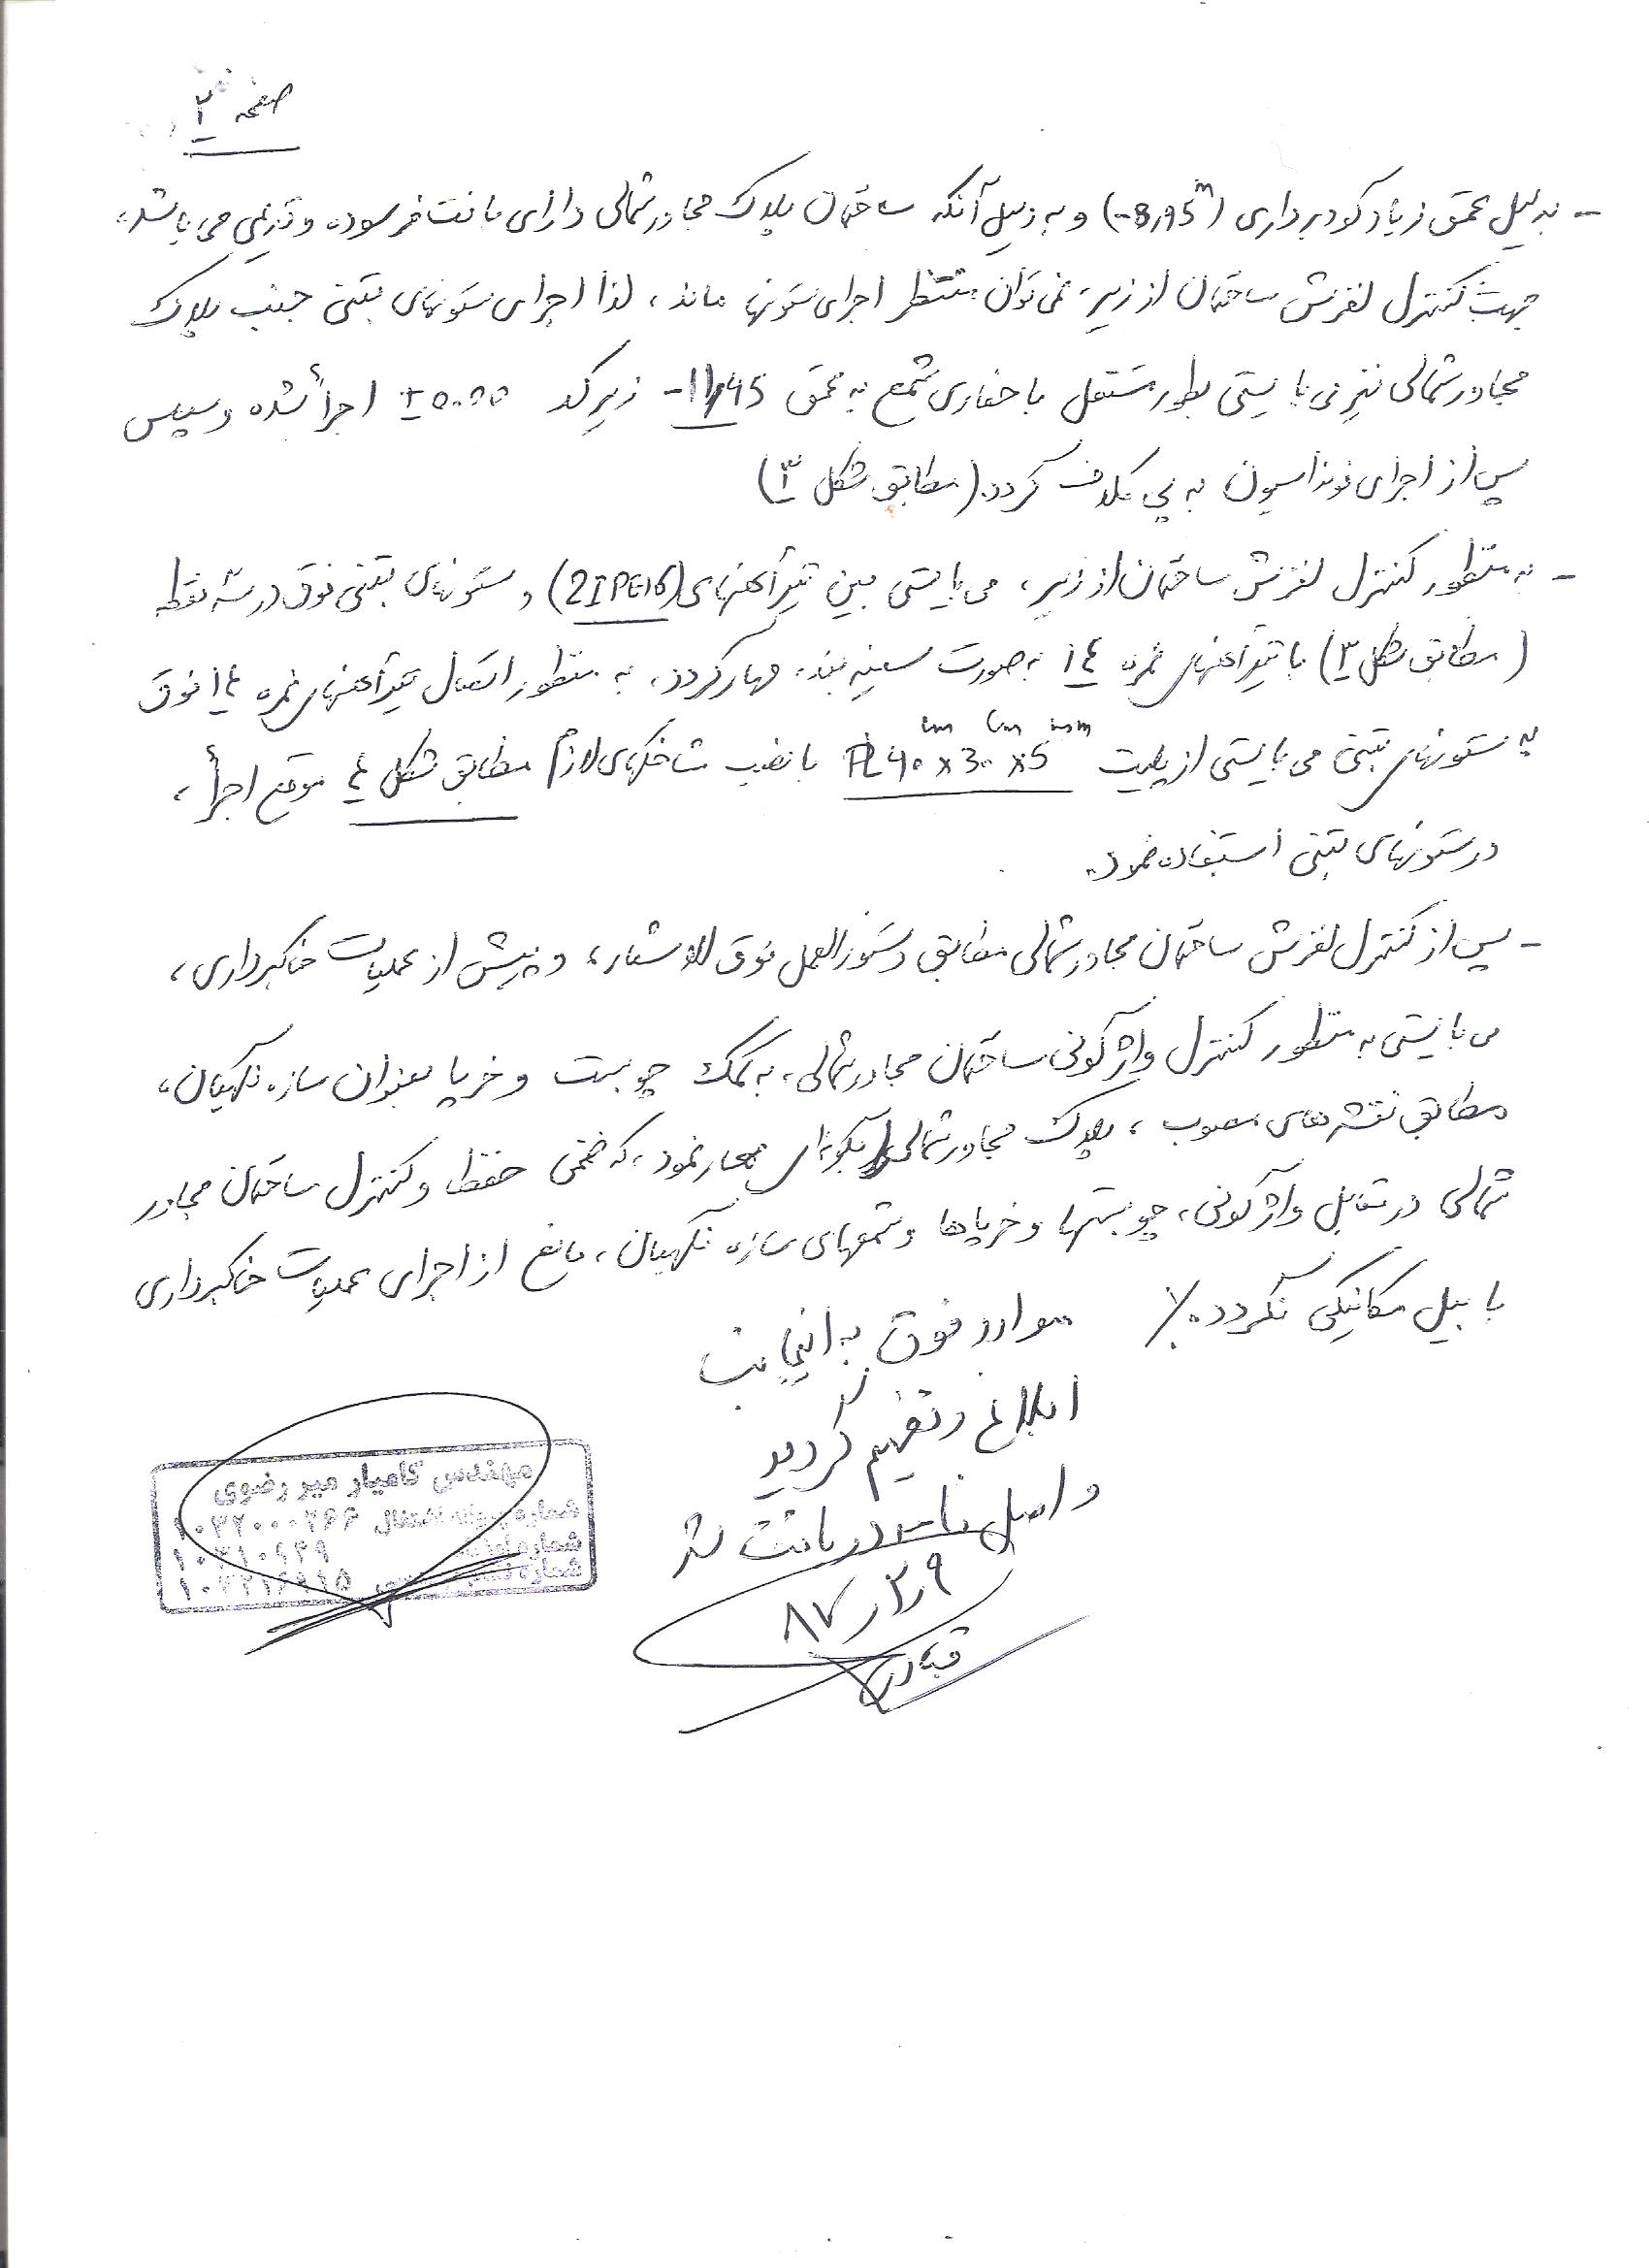 صفحه ۲
- بدلیل عمق زیاد گودبرداری (-8,95m) و به دلیل آنکه ساختمان پلاک مجاور شمالی دارای بافت فرسوده و قدیمی می باشد،
جهت کنترل لغزش ساختمان از زیر، نمی توان منتظر اجرای ستونها ماند، لذا اجرای ستونهای بتنی جنب پلاک
مجاور شمالی نیز می بایستی بطور مستقل با حفاری شمع به عمق -11,45 زیر کد ±0.00 اجرأ شده و سپس
پس از اجرای فونداسیون به پی کلاف گردد. (مطابق شکل ۳)
- به منظور کنترل لغزش ساختمان از زیر، می بایستی بین تیرآهنهای (2IPE16) و ستونهای بتنی فوق در سه نقطه
(مطابق شکل ۳) با تیرآهنهای نمره ۱۴ به صورت سینه بند، مهار گردد، به منظور اتصال تیرآهنهای نمره ۱۴ فوق
به ستونهای بتنی می بایستی از پلیت PL 40cm x 30cm x 5mm با نصب شاخکهای لازم مطابق شکل ۴ موقع اجرأ،
در ستونهای بتنی استفاده نمود.
- پس از کنترل لغزش ساختمان مجاور شمالی مطابق دستورالعمل فوق الاشعار، و پیش از عملیات خاکبرداری،
می بایستی به منظور کنترل واژگونی ساختمان مجاور شمالی، به کمک چوبست و خرپا بعنوان سازه نگهبان،
مطابق نقشه های مصوب، پلاک مجاور شمالی را بگونه ای مهار نمود، که ضمن حفظ و کنترل ساختمان مجاور
شمالی در مقابل واژگونی، چوبستها و خرپاها و شمعهای سازه نگهبان، مانع از اجرای عملیات خاکبرداری
با بیل مکانیکی نگردد. ٪
موارد فوق به اینجانب
ابلاغ و تفهیم گردید
و اصل نامه دریافت شد
۸۷/۳/۹
مهندس کامیار میر رضوی
شماره پروانه اشتغال
شماره
شماره